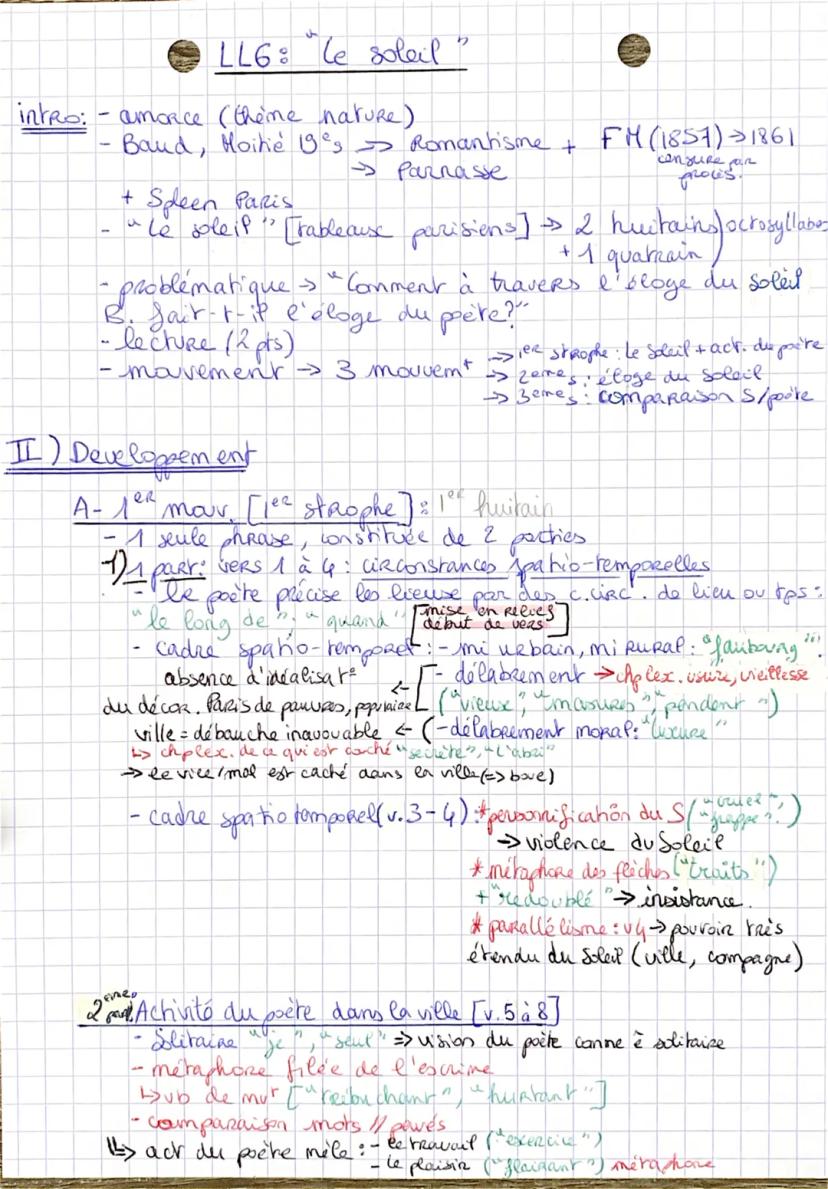 LL6 : "Le soleil"
intro: - amorce (thème nature)
- Baud, Moitié 19e s → Romantisme + FM (1857) → 1861
→ Parnasse
censure par procès.
+ Spleen Paris
- "Le soleil" [tableaux parisiens] → 2 huitains) octosyllabes
+ 1 quatrain
- problématique → "Comment à travers l'éloge du soleil
B. fait-t-il l'éloge du poète?"
- lecture (2 pts)
- mouvement → 3 mouvemt → 1er strophe : Le Soleil + act. du poète
→ 2eme s : éloge du soleil
→ 3eme s : comparaison S/poète
II) Developpement
A- 1er mouv. [1er strophe] : 1er huitain
- 1 seule phrase, constituée de 2 parties
1) 1 part: vers 1 à 4 : circonstances spatio-temporelles
- le poète précise les lieuse par des c.circ. de lieu ou tps :
"le long de" ; "quand" [mise en relief début de vers]
- cadre spatio-temporel : - mi urbain, mi rural : "faubourg"
absence d'idéalisat° ← [- délabrement → chp lex. usure, vieillesse
du décor. Paris de pauvres, populaire ("vieux", "masures", "pendent")
ville = débauche inavouable ← (-délabrement moral: "luxure"
↳ chp lex. de ce qui est caché "secrète", "l'abri"
→ le vice/mal est caché dans la ville (=> boue)
- cadre spatio temporel (v.3-4) : * personnification du S ("cruel", "frappe")
→ violence du Soleil
* métaphore des flèches ("traits")
+ "redoublé" → insistance.
* parallélisme : v4 → pouvoir très
étendu du Soleil (ville, campagne)
2eme part. Activité du poète dans la ville [v.5 à 8]
- Solitaire "je", "seul" => vision du poète comme ê solitaire
- métaphore filée de l'escrime
↳ vb de mvt ["trébuchant", "heurtant"]
- comparaison mots // pavés
↳ act du poète mêle : - le travail ("exercice")
- le plaisir ("flairant") métaphore